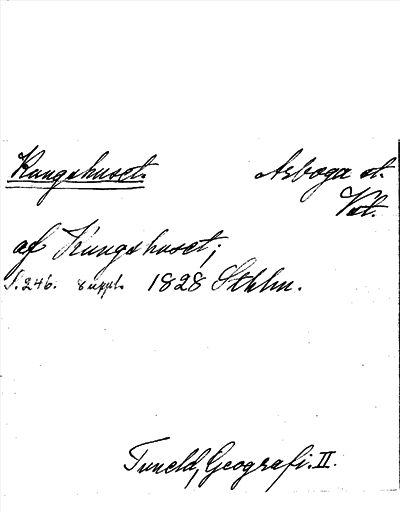 Kungshuset. Arboga st.
Vst.
af Kungshuset;
S. 246. 8 uppl. 1828 Sthlm.
Tuneld, Geografi. II.